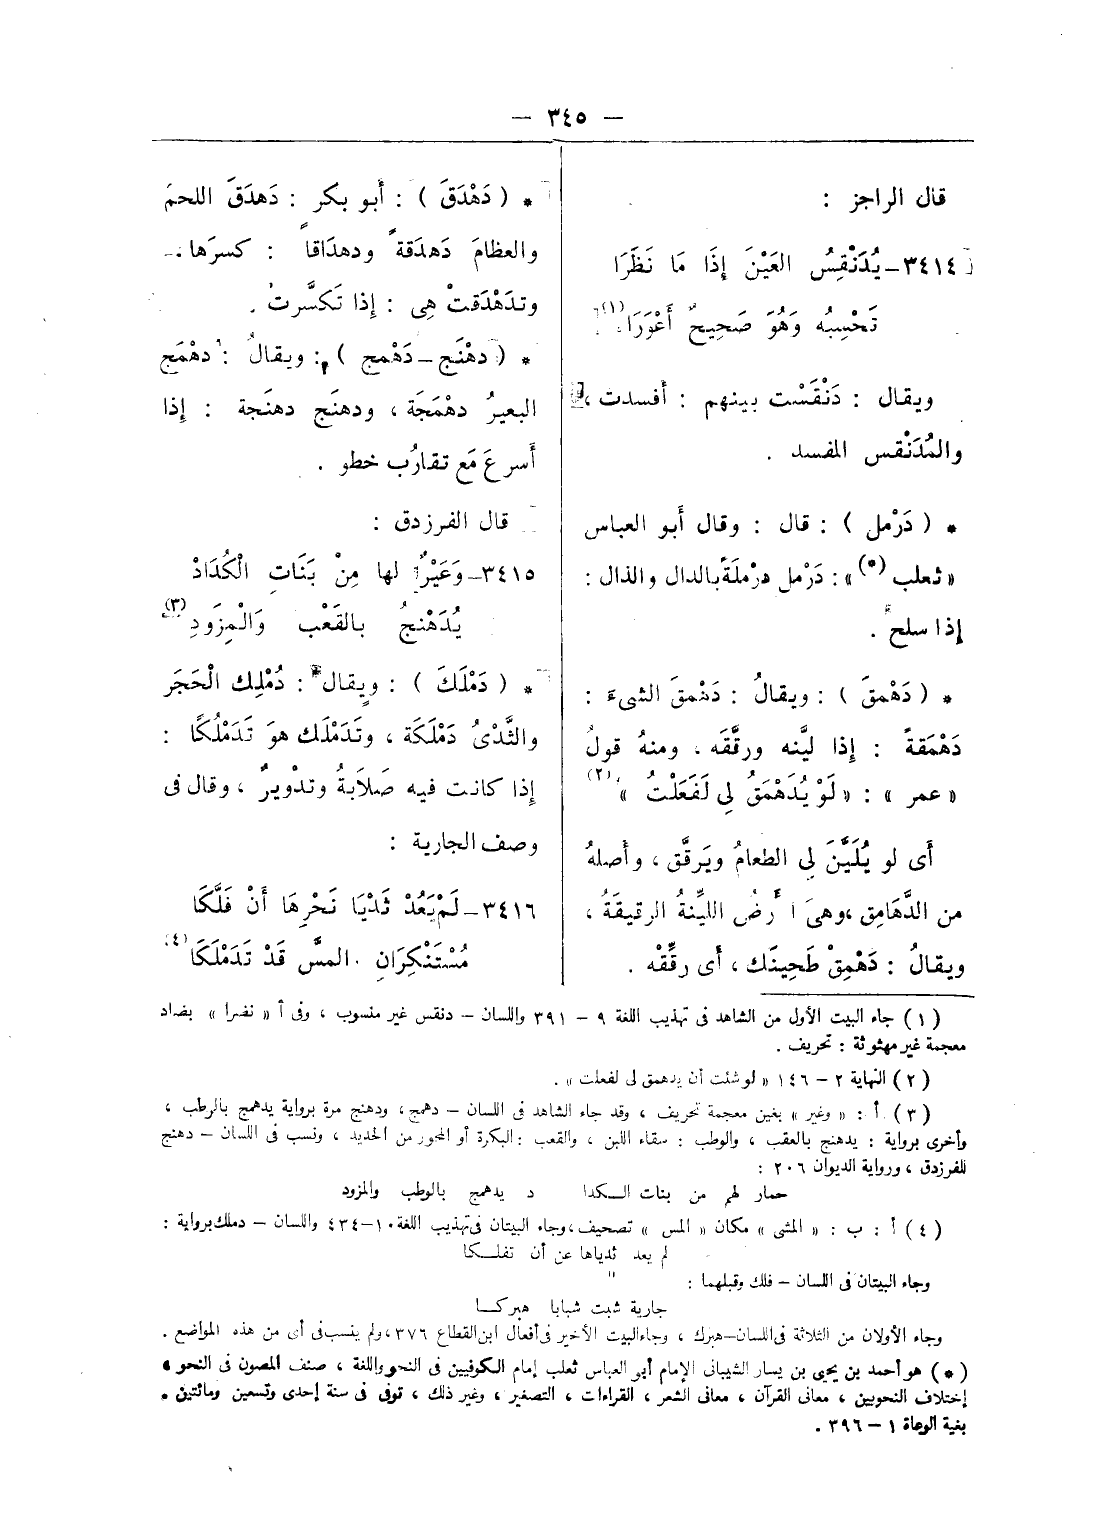 — ٣٤٥ —
قال الراجز :
٣٤١٤ـ يُدَنْقِسُ العَيْنَ إِذَا مَا نَظَرَا
تَحْسِبُه وَهُوَ صَحِيحٌ أَعْوَرَا (١)
ويقال : دَنْقَسْت بينهم : أفسدت ،
والمُدَنْقس المفسد .
* ( دَرْمل ) : قال : وقال أبو العباس
« ثعلب (*) » : دَرْمل درْملَةً بالدال والذال :
إذا سلح .
* ( دَهْمقَ ) : ويقالُ : دَهْمقَ الشىءَ :
دَهْمَقةً : إذا ليَّنه ورقَّقَه ، ومنهُ قولُ
« عمر » : « لَوْ يُدَهْمَقُ لِى لَفَعَلْتُ » (٢)
أى لو يُلَيَّنَ لِى الطعامُ ويَرقَّق ، وأصلهُ
من الدَّهامِق ، وهىَ الأَرضُ الليِّنةُ الرقيقةُ ،
ويقالُ : دَهْمِقْ طَحِينَك ، أى رقِّقْه .
* ( دَهْدَقَ ) : أبو بكر : دَهدَقَ اللحمَ
والعظامَ دَهدَقةً ودهدَاقاً : كسرَها .
وتدَهْدَقتْ هِى : إذا تَكسَّرتْ .
* ( دهْنَج ــ دَهْمج ) : ويقالُ : دهْمَج
البعيرُ دهْمَجَة ، ودهنَج دهنَجة : إذَا
أَسرعَ مَع تقارُب خطو .
قال الفرزدق :
٣٤١٥ـ وَعَيْرٌ لها مِنْ بَنَاتِ الْكُدَادْ
يُدَهْنِجُ بالقَعْب وَالْمِزْوَدِ (٣)
* ( دَمْلَكَ ) : ويقال : دُمْلِك الْحَجَر
والثَّدْىُ دَمْلَكَة ، وتَدَمْلَك هوَ تَدَمْلُكًا :
إذَا كانت فيه صَلاَبةُ وتدْويرٌ ، وقال فى
وصف الجارية :
٣٤١٦ـ لَمْ يَعُدْ ثَدْيَا نَحْرِهَا أَنْ فَلَّكَا
مُسْتَنْكِرَانِ المسَّ قَدْ تَدَمْلَكَا (٤)
( ١ ) جاء البيت الأول من الشاهد فى تهذيب اللغة ٩ – ٣٩١ واللسان – دنقس غير منسوب ، وفى أ « نضرا » بضاد
معجمة غير مهثوثة : تحريف .
( ٢ ) النهاية ٢ – ١٤٦ « لو شئت أن يدهمق لى لفعلت » .
( ٣ ) أ : « وغير » بغين معجمة تحريف ، وقد جاء الشاهد فى اللسان – دهمج ، ودهنج مرة برواية يدهمج بالرطب ،
وأخرى برواية : يدهنج بالعقب ، والوطب : سقاء اللبن ، والقعب : البكرة أو المحور من الحديد ، ونسب فى اللسان – دهنج
للفرزدق ، ورواية الديوان ٢٠٦ :
حمار لهم من بنات الكدا د يدهمج بالوطب والمزود
( ٤ ) أ : ب : « المشى » مكان « المس » تصحيف ، وجاء البيتان فى تهذيب اللغة ١٠–٤٣٤ واللسان – دملك برواية :
لم يعد ثدياها عن أن تفلكا
وجاء البيتان فى اللسان – فلك وقبلهما :
جارية شبت شبابا هبركا
وجاء الأولان من الثلاثة فى اللسان–هبرك ، وجاء البيت الأخير فى أفعال ابن القطاع ٣٧٦ ، ولم ينسب فى أى من هذه المواضع .
( * ) هو أحمد بن يحيى بن يسار الشيبانى الإمام أبو العباس ثعلب إمام الكوفيين فى النحو واللغة ، صنف المصون فى النحو ،
إختلاف النحويين ، معانى القرآن ، معانى الشعر ، القراءات ، التصغير ، وغير ذلك ، توفى فى سنة إحدى وتسعين ومائتين .
بغية الوعاة ١ – ٣٩٦ .